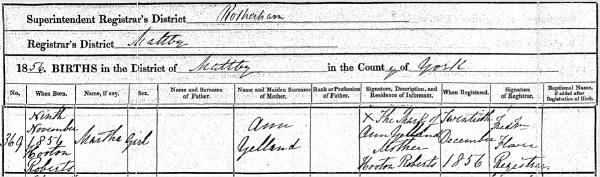 Superintendent Registrar's District Rotherham
Registrar's District Maltby
1856. BIRTHS in the District of Maltby in the County of York
No. When Born. Name, if any. Sex. Name and Surname of Father. Name and Maiden Surname of Mother. Rank or Profession of Father. Signature, Description, and Residence of Informant. When Registered. Signature of Registrar. Baptismal Name, if added after Registration of Birth.
369
Ninth
November
1856
Hooton
Roberts
Martha
Girl
Ann
Yelland
X The Mark of
Ann Yelland
Mother
Hooton Roberts
Twentieth
December
1856
Flower
Registrar